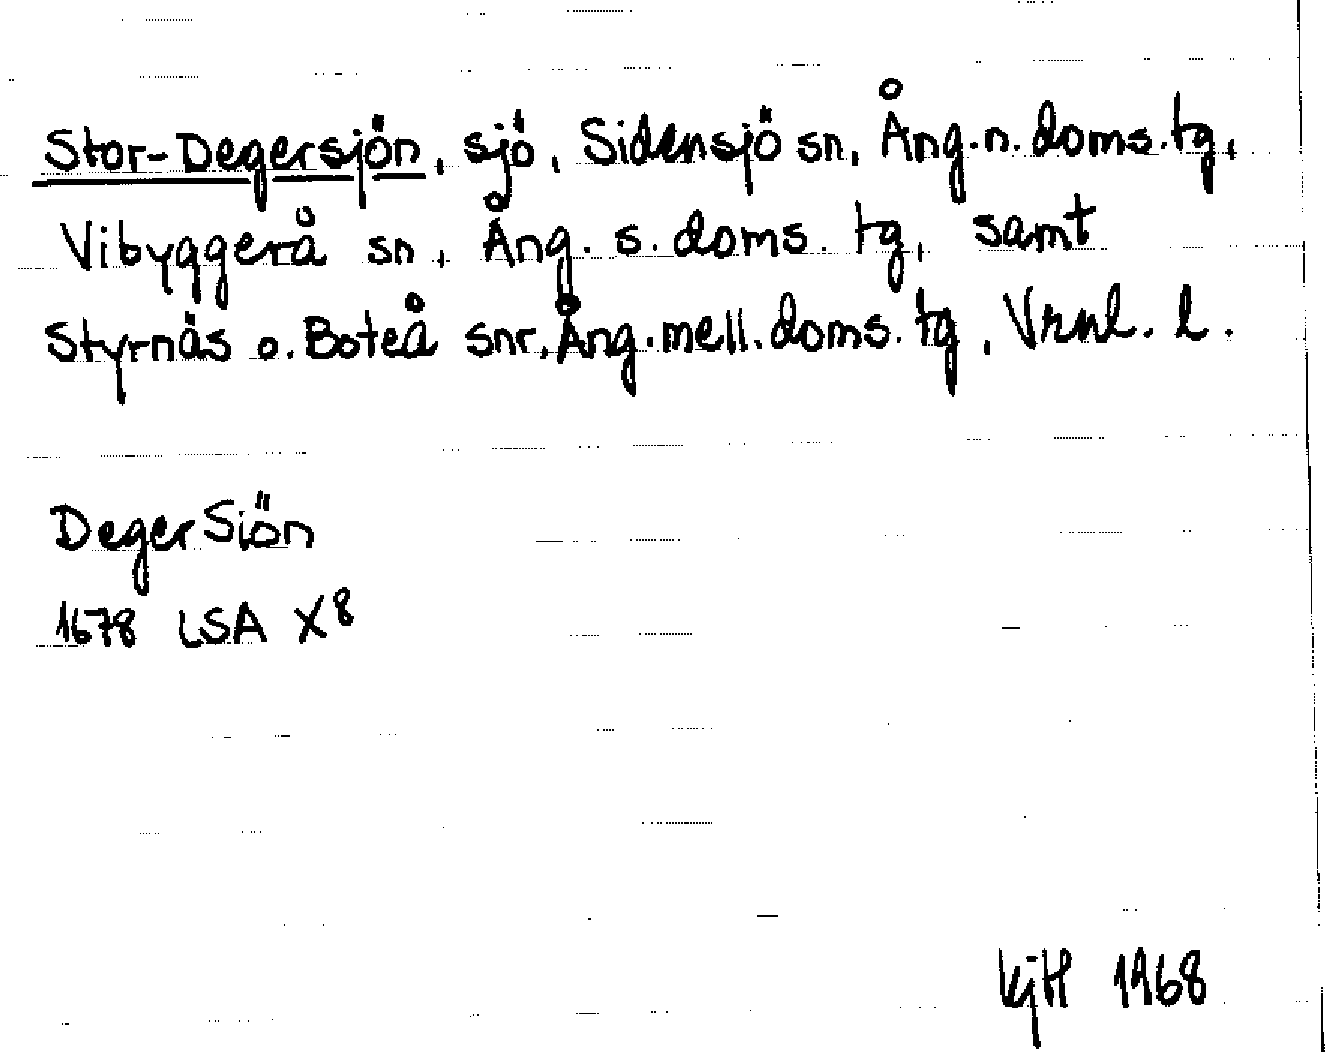 Stor-Degersjön, sjö, Sidensjö sn, Ång.n.doms.tg,
Vibyggerå sn, Ång. s. doms. tg, samt
Styrnäs o. Boteå snr, Ång.mell.doms.tg, Vrnl. l.
DegerSiön
1678 LSA X8
KjH 1968